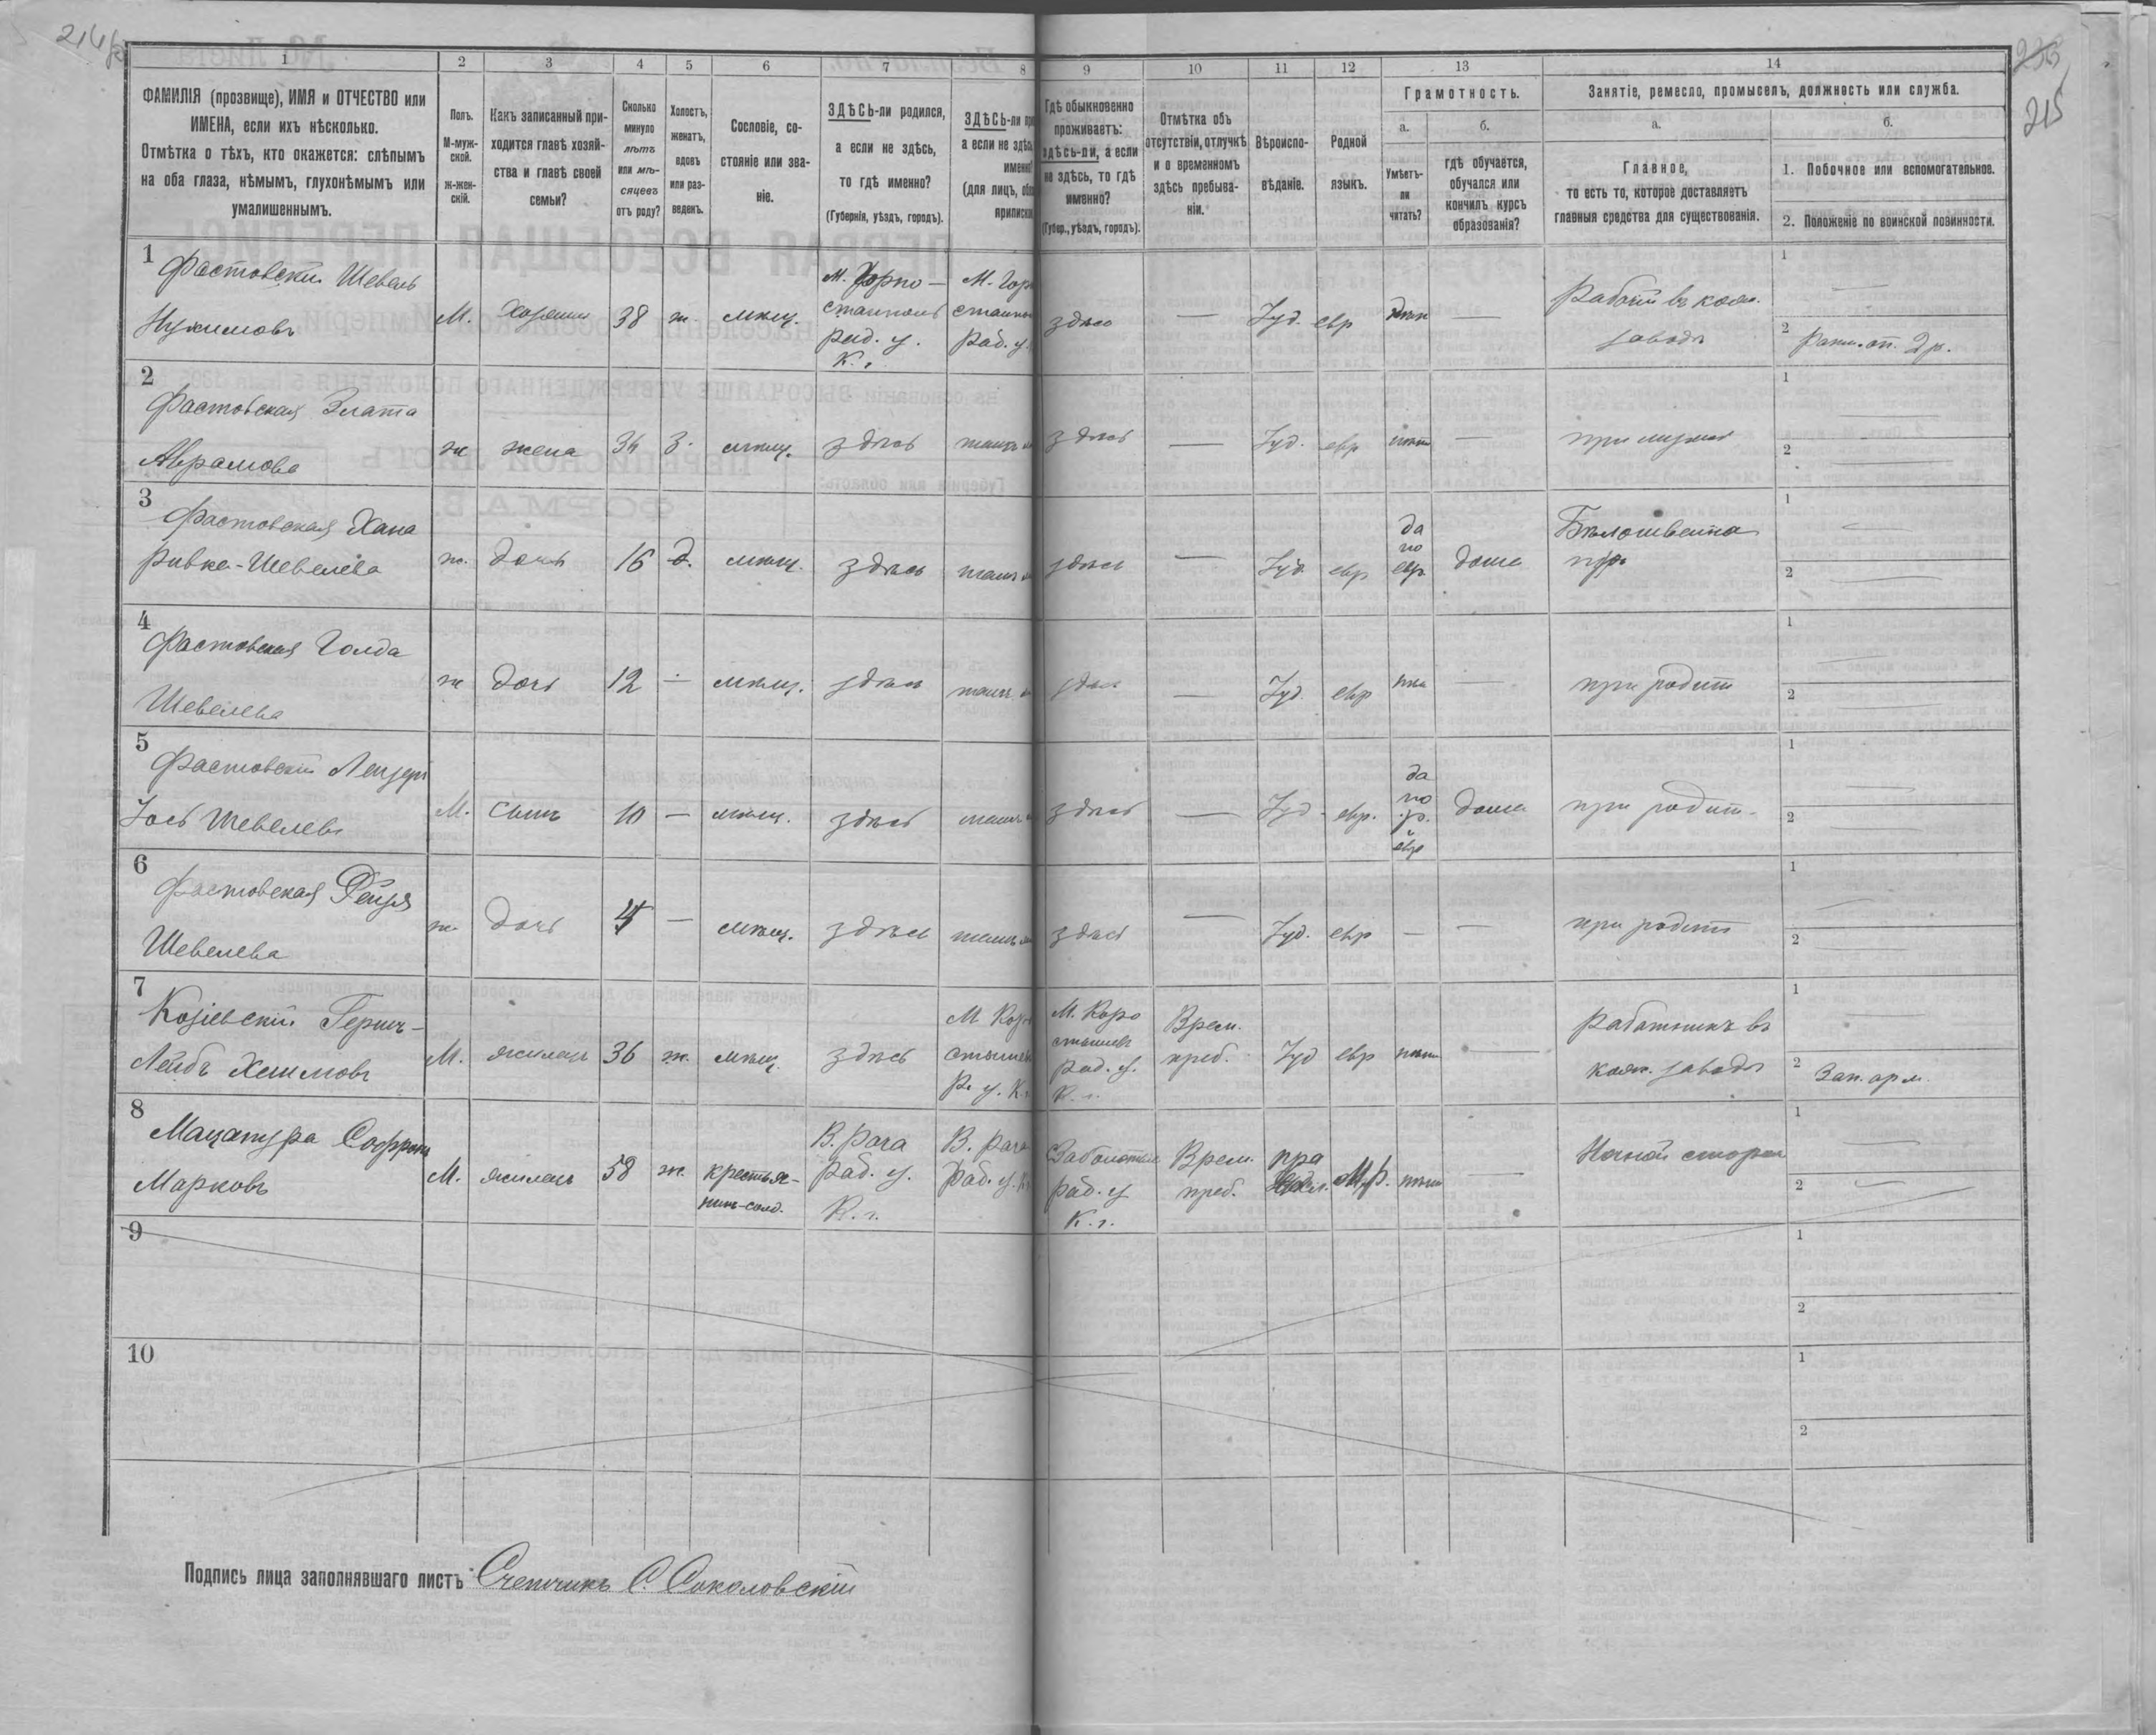 214
235
215
1 2 3 4 5 6 7 8 9 10 11 12 13 14
ФАМИЛІЯ (прозвище), ИМЯ и ОТЧЕСТВО или
ИМЕНА, если ихъ нѣсколько.
Отмѣтка о тѣхъ, кто окажется: слѣпымъ
на оба глаза, нѣмымъ, глухонѣмымъ или
умалишеннымъ.
Полъ.
М-муж-
ской.
ж-жен-
скій.
Какъ записанный при-
ходится главѣ хозяй-
ства и главѣ своей
семьи?
Сколько
минуло
лѣтъ
или мѣ-
сяцевъ
отъ роду?
Холостъ,
женатъ,
вдовъ
или раз-
веденъ.
Сословіе, со-
стояніе или зва-
ніе.
ЗДѢСЬ-ли родился,
а если не здѣсь,
то гдѣ именно?
(Губернія, уѣздъ, городъ).
ЗДѢСЬ-ли
а если не
(для лицъ,
Гдѣ обыкновенно
проживаетъ:
здѣсь-ли, а если
не здѣсь, то гдѣ
именно?
(Губер., уѣздъ, городъ).
Отмѣтка объ
отсутствіи, отлучкѣ
и о временномъ
здѣсь пребыва-
ніи.
Вѣроиспо-
вѣданіе.
Родной
языкъ.
Грамотность.
а.
Умѣетъ-
ли
читать?
б.
гдѣ обучается,
обучался или
кончилъ курсъ
образованія?
Занятіе, ремесло, промыселъ, должность или служба.
а.
Главное,
то есть то, которое доставляетъ
главныя средства для существованія.
б.
1. Побочное или вспомогательное.
2. Положеніе по воинской повинности.
1
Фастовскій Шевель
Нухимовъ
М. хозяинъ 38 ж. мѣщ.
М. Горно-
стайполь
Рад. у.
К. г.
М. Гор
Рад. у.
здѣсь — Іуд. евр —
Рабочій въ кож.
заводѣ
1 —
2 Ратн. оп. 2 р.
2
Фастовская Злата
Аврамова
ж жена 34 З. мѣщ. здѣсь тамъ здѣсь — Іуд. евр —
1 —
2 —
3
Фастовская Хана
Ривка-Шевелева
ж. дочь 16 д. мѣщ. здѣсь тамъ здѣсь — Іуд. евр
да
по
евр.
дома
Бѣлошвейка
1 —
2 —
4
Фастовская Голда
Шевелева
ж дочь 12 — мѣщ. здѣсь тамъ здѣсь — Іуд. евр —
при родит
1 —
2 —
5
Фастовскій Лейзеръ
Іосъ Шевелевъ
М. сынъ 10 — мѣщ. здѣсь тамъ здѣсь — Іуд. евр.
да
по
р.
и
евр
дома
при родит.
1 —
2 —
6
Фастовская Фейзя
Шевелева
ж. дочь 4 — мѣщ. здѣсь тамъ здѣсь — Іуд. евр — —
при родит
1 —
2 —
7
Козіевскій Гершъ-
Лейбъ Хаимовъ
М. жилецъ 36 ж. мѣщ. здѣсь
М Кор
Р. у. К.
М. Коро
стышев
Рад. у.
К. г.
Врем.
преб.
Іуд евр —
Работникъ въ
кож. заводѣ
1 —
2 Зап. арм.
8
Мацапура Софронъ
Марковъ
М. жилецъ 58 ж.
крестья-
нинъ-солд.
В. Рача
Рад. у.
К. г.
В. Рача
Рад. у. К
Рад. у
К. г.
Врем.
преб.
пра
М.Р. —
Ночной сторож
1 —
2 —
9
1
2
10
1
2
Подпись лица заполнявшаго листъ Счетчикъ С. Соколовскій